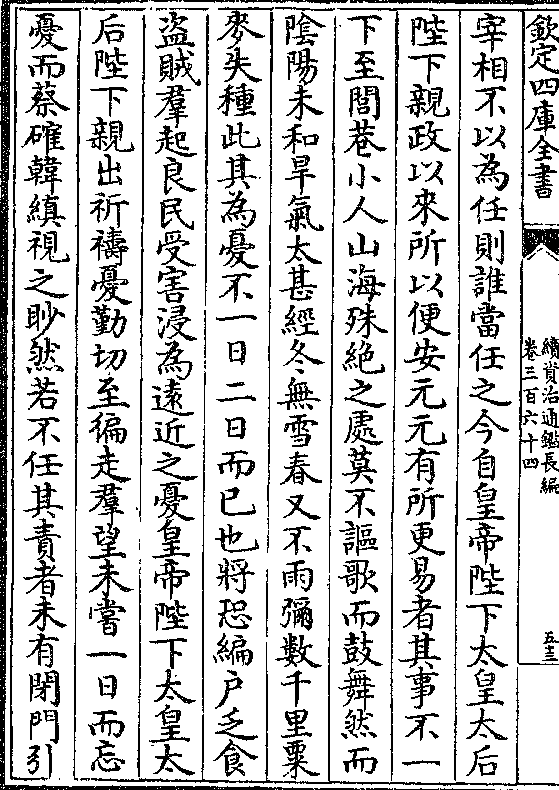 欽定四庫全書
續資治通鑑長編
卷三百六十四
五十三
宰相不以為任則誰當任之今自皇帝陛下太皇太后
陛下親政以來所以便安元元有所更易者其事不一
下至閭巷小人山海殊絶之處莫不謳歌而鼓舞然而
陰陽未和旱氣太甚經冬無雪春又不雨彌數千里粟
麥失種此其為憂不一日二日而已也將恐編户乏食
盗賊羣起良民受害浸為遠近之憂皇帝陛下太皇太
后陛下親出祈禱憂勤切至徧走羣望未嘗一日而忘
憂而蔡確韓縝視之眇然若不任其責者未有閉門引